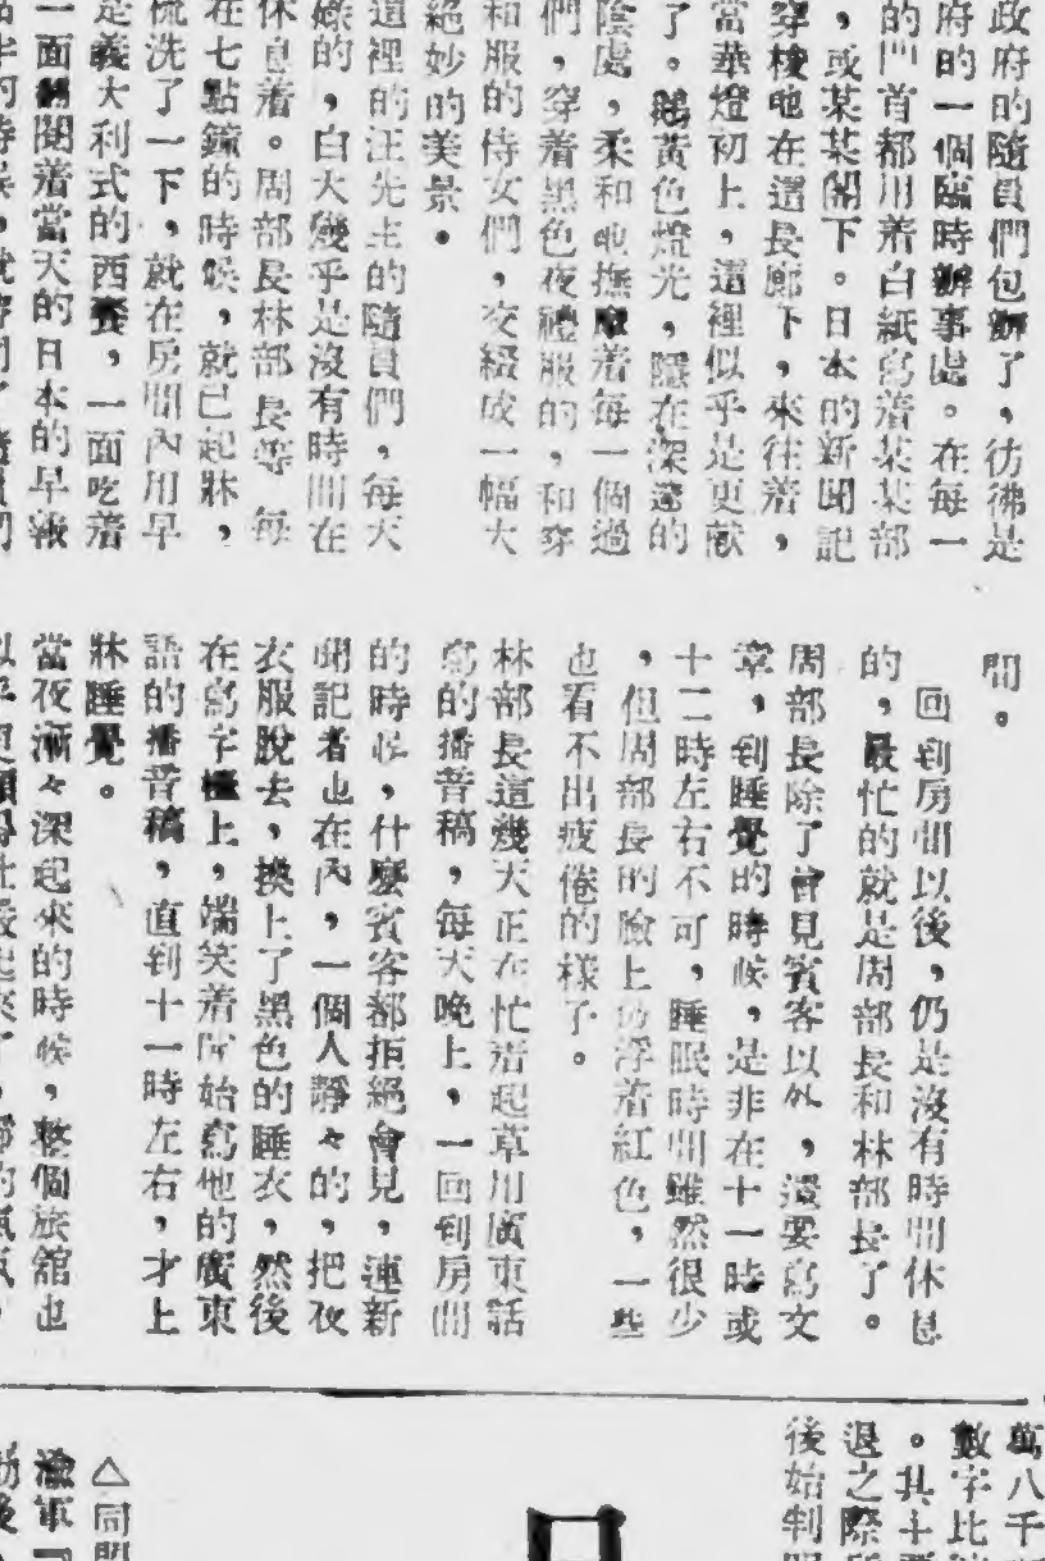 政府的隨員們包辦了，彷彿是
府的一個臨時辦事處。在每一
的門首都用着白紙寫着某某部
，或某某閣下。日本的新聞記
穿梭地在這長廊下，來往着，
當華燈初上，這裡似乎是更獻
了。鵝黃色燈光，隱在深邃的
陰處，柔和地撫摩着每一個過
們，穿着黑色夜禮服的，和穿
和服的侍女們，交綴成一幅大
絕妙的美景。
這裡的汪先生的隨員們，每天
線的，白天幾乎是沒有時間在
休息着。周部長林部長等 每
在七點鐘的時候，就已起牀，
梳洗了一下，就在房間內用早
是義大利式的西餐，一面吃着
一面翻閱着當天的日本的早報
間。
回到房間以後，仍是沒有時間休息
的，最忙的就是周部長和林部長了。
周部長除了會見賓客以外，還要寫文
章，到睡覺的時候，是非在十一時或
十二時左右不可，睡眠時間雖然很少
，但周部長的臉上仍浮着紅色，一些
也看不出疲倦的樣子。
林部長這幾天正在忙着起草用廣東話
寫的播音稿，每天晚上，一回到房間
的時候，什麼賓客都拒絕會見，連新
聞記者也在內，一個人靜々的，把衣
衣服脫去，換上了黑色的睡衣，然後
在寫字檯上，端笑着開始寫他的廣東
語的播音稿，直到十一時左右，才上
牀睡覺。
當夜漸々深起來的時候，整個旅舘也
萬八千
數字比
。其主
退之際
後始判
△同盟
渝軍『